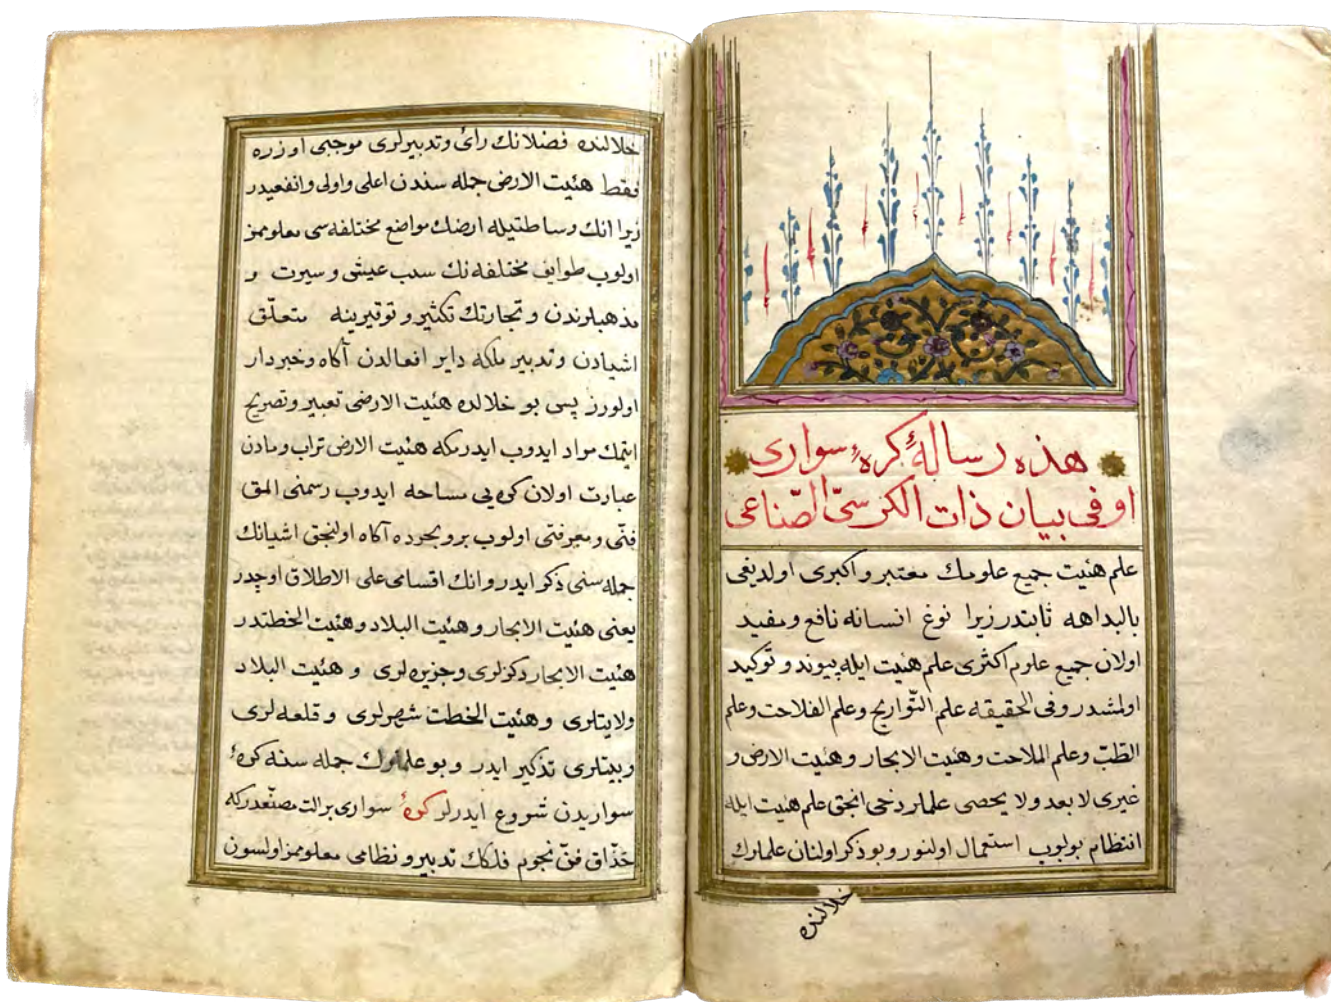 هذه رسالهٔ كرهٔ سوارى
او فى بيان ذات الكرسىّ الصّناعى
علم هئيت جميع علومك معتبر و اكبرى اولديغى
بالبداهه ثابتدر زيرا نوع انسانه نافع و مفيد
اولان جميع علوم اكثرى علم هئيت ايله پيوند و توكيد
اولمشدر و فى الحقيقه علم التّواريخ و علم الفلاحت و علم
الطّبّ و علم الملاحت و هئيت الابحار و هئيت الارض و
غيرى لا يعد و لا يحصى علملر دخى انجق علم هئيت ايله
انتظام بولوب استعمال اولنور و بو ذكر اولنان علملرك
خلالنده
خلالنده فضلانك رأى و تدبيرلرى موجبى اوزره
فقط هئيت الارض جمله سندن اعلى و اولى و انفعيدر
زيرا انك وساطتيله ارضك مواضع مختلفه سى معلوممز
اولوب طوايف مختلفه نك سبب عيش و سيرت و
مذهبلرندن و تجارتك تكثير و توقيرينه متعلّق
اشيادن و تدبير ملكه داير افعالدن آكاه و خبردار
اولورز پس بو خلالده هئيت الارضى تعبير و تصريح
ايتمك مراد ايدوب ايدرمكه هئيت الارض تراب و مادن
عبارت اولان كره يى مساحه ايدوب رسمنى المق
فنّى و معرفتى اولوب بر و بحرده آكاه اولنجق اشيانك
جمله سنى ذكر ايدر و انك اقسامى على الاطلاق اوچدر
يعنى هئيت الابحار و هئيت البلاد و هئيت الخطتدر
هئيت الابحار دكزلرى و جزيره لرى و هئيت البلاد
ولايتلرى و هئيت الخطت شهرلرى و قلعه لرى
و بيتلرى تذكير ايدر و بو علملرك جمله سنه كرهٔ
سواريدن شروع ايدرلر كرهٔ سوارى بر الت مصنّعدركه
حذّاق فنّ نجوم فلكك تدبير و نظامى معلوممز اولسون